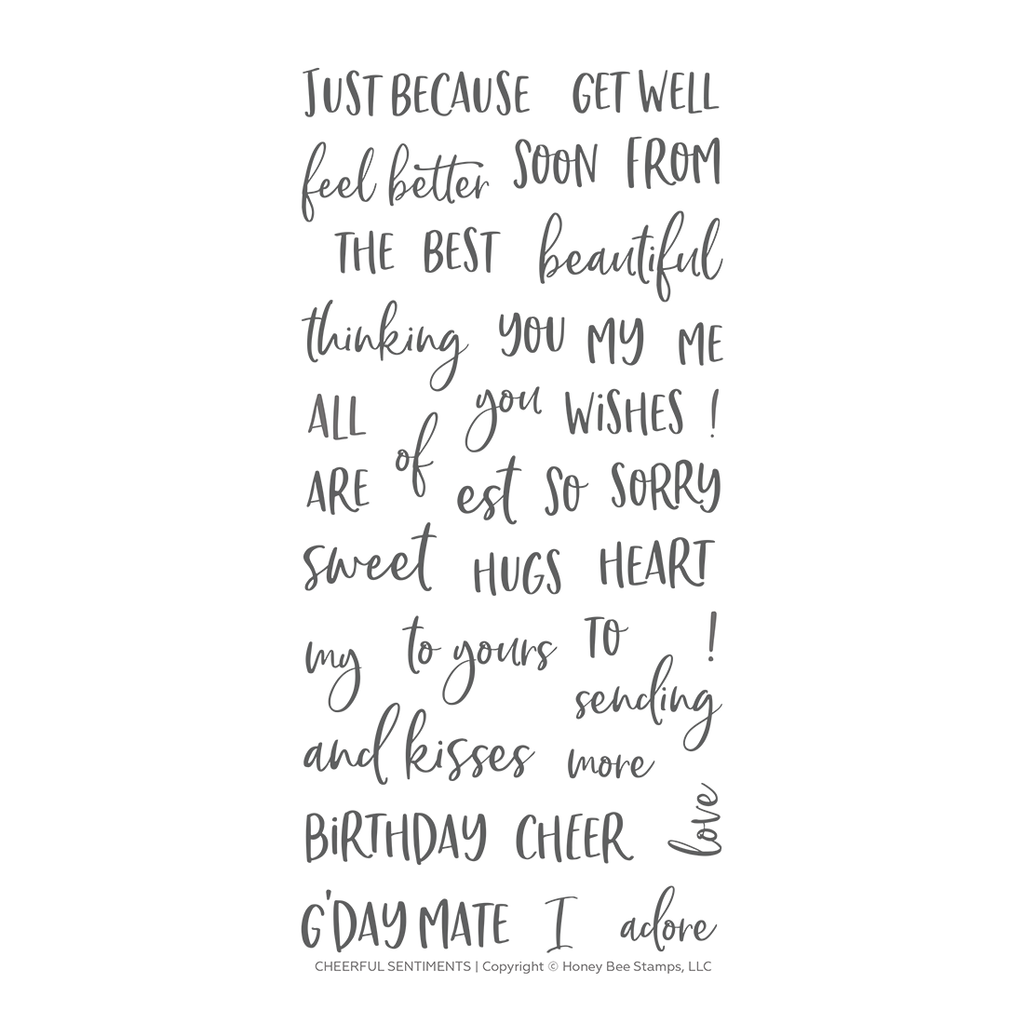 JUST BECAUSE GET WELL
feel better SOON FROM
THE BEST beautiful
thinking YOU MY ME
ALL you WiSHES !
of
ARE est SO SORRY
sweet HUGS HEART
my to yours TO !
sending
and kisses more
love
BiRTHDAY CHEER
G'DAY MATE I adore
CHEERFUL SENTIMENTS | Copyright © Honey Bee Stamps, LLC